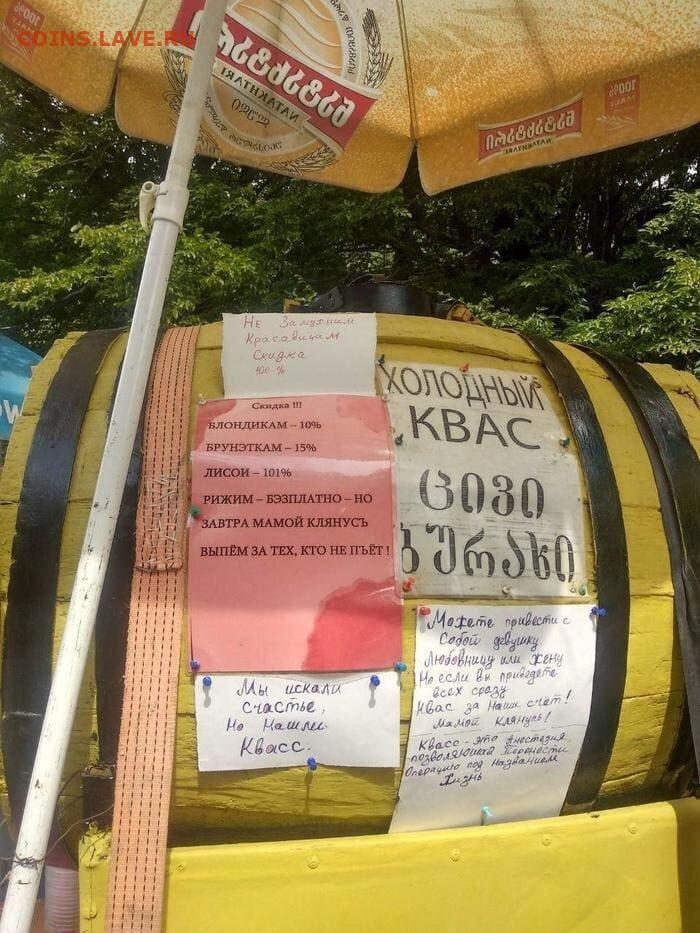 COINS.LAVE.RU
100%
ნატახტარი
NATAKHTARI
ლუდი
100%
ნატახტარი
NATAKHTARI
Не Замужним
Красавицам
Скидка
100-%
Скидка !!!
БЛОНДИКАМ – 10%
БРУНЭТКАМ – 15%
ЛИСОИ – 101%
РИЖИМ – БЭЗПЛАТНО – НО
ЗАВТРА МАМОЙ КЛЯНУСЪ
ВЫПЁМ ЗА ТЕХ, КТО НЕ ПЪЁТ !
ХОЛОДНЫЙ
КВАС
ცივი
ბურახი
Мы искали
счастье,
Но Нашли
Квасс.
Можете привести с
Собой девушку
Любовницу или жену
Но если вы приведёте
всех сразу
Квас за Наш счёт!
Мамой Клянусь!
Квасс - это Анестезия,
позволяющая Перенести
Операцию под Названием
Жизнь